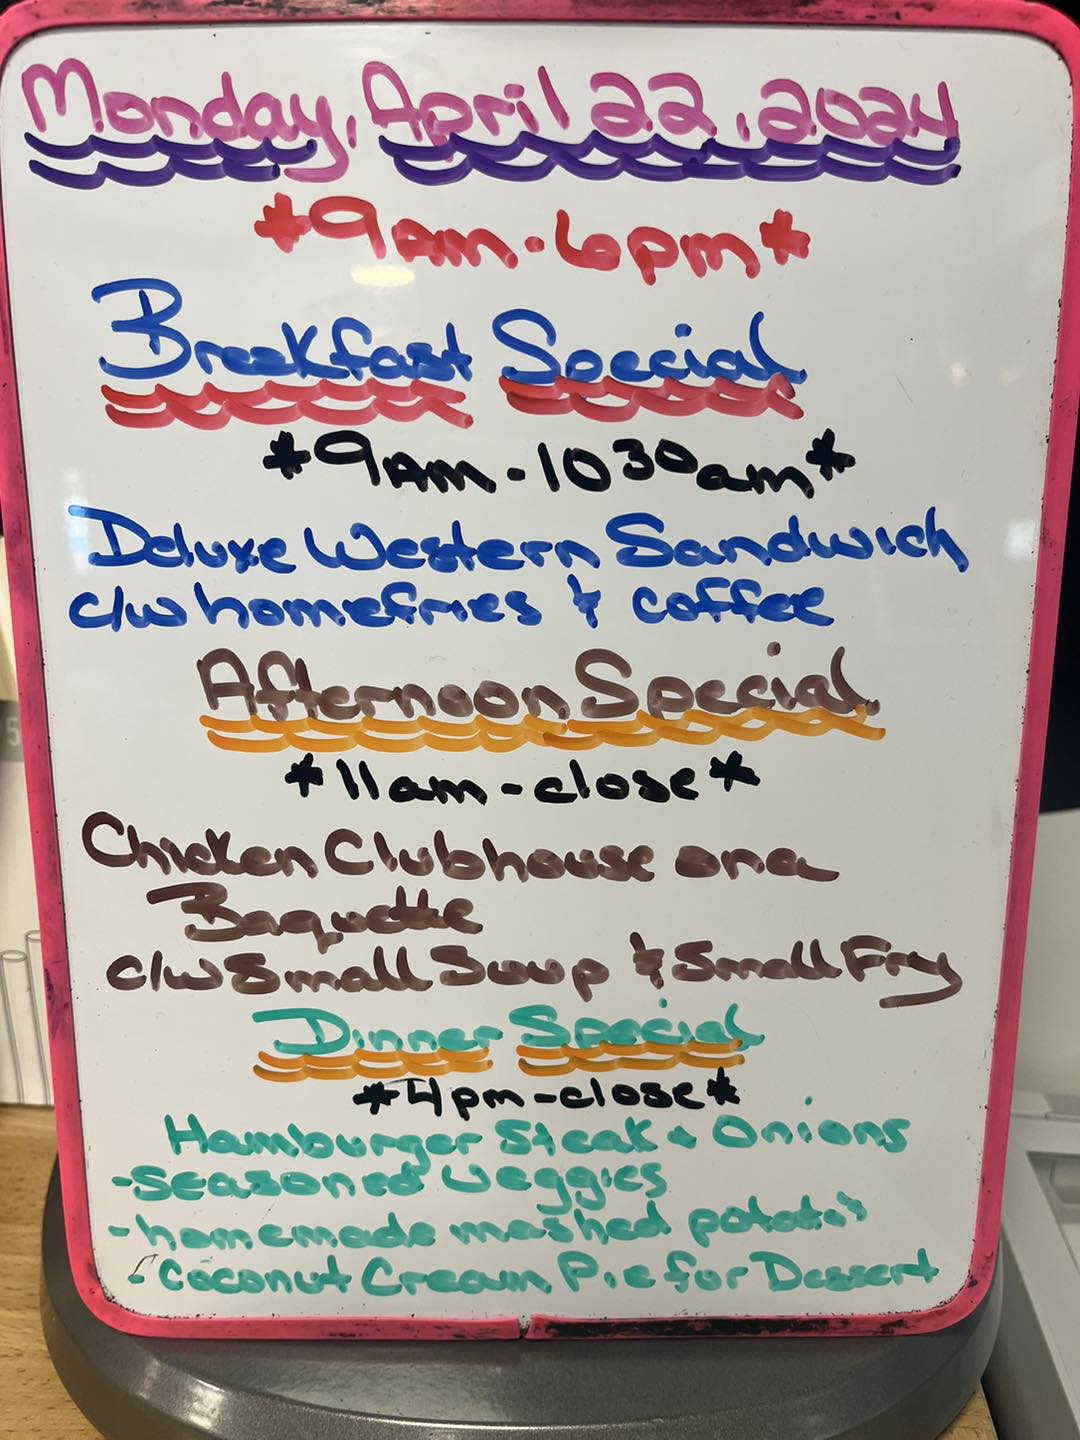 Monday, April 22, 2024
*9am-6pm*
Breakfast Special
*9Am-1030am*
Deluxe Western Sandwich
c/w homefries & coffee
Afternoon Special
*11am-close*
Chicken Clubhouse on a
Baguette
c/w Small Soup & Small Fry
Dinner Special
*4pm-close*
Hamburger Steak & Onions
-Seasoned Veggies
-homemade mashed
-Coconut Cream Pie for Dessert